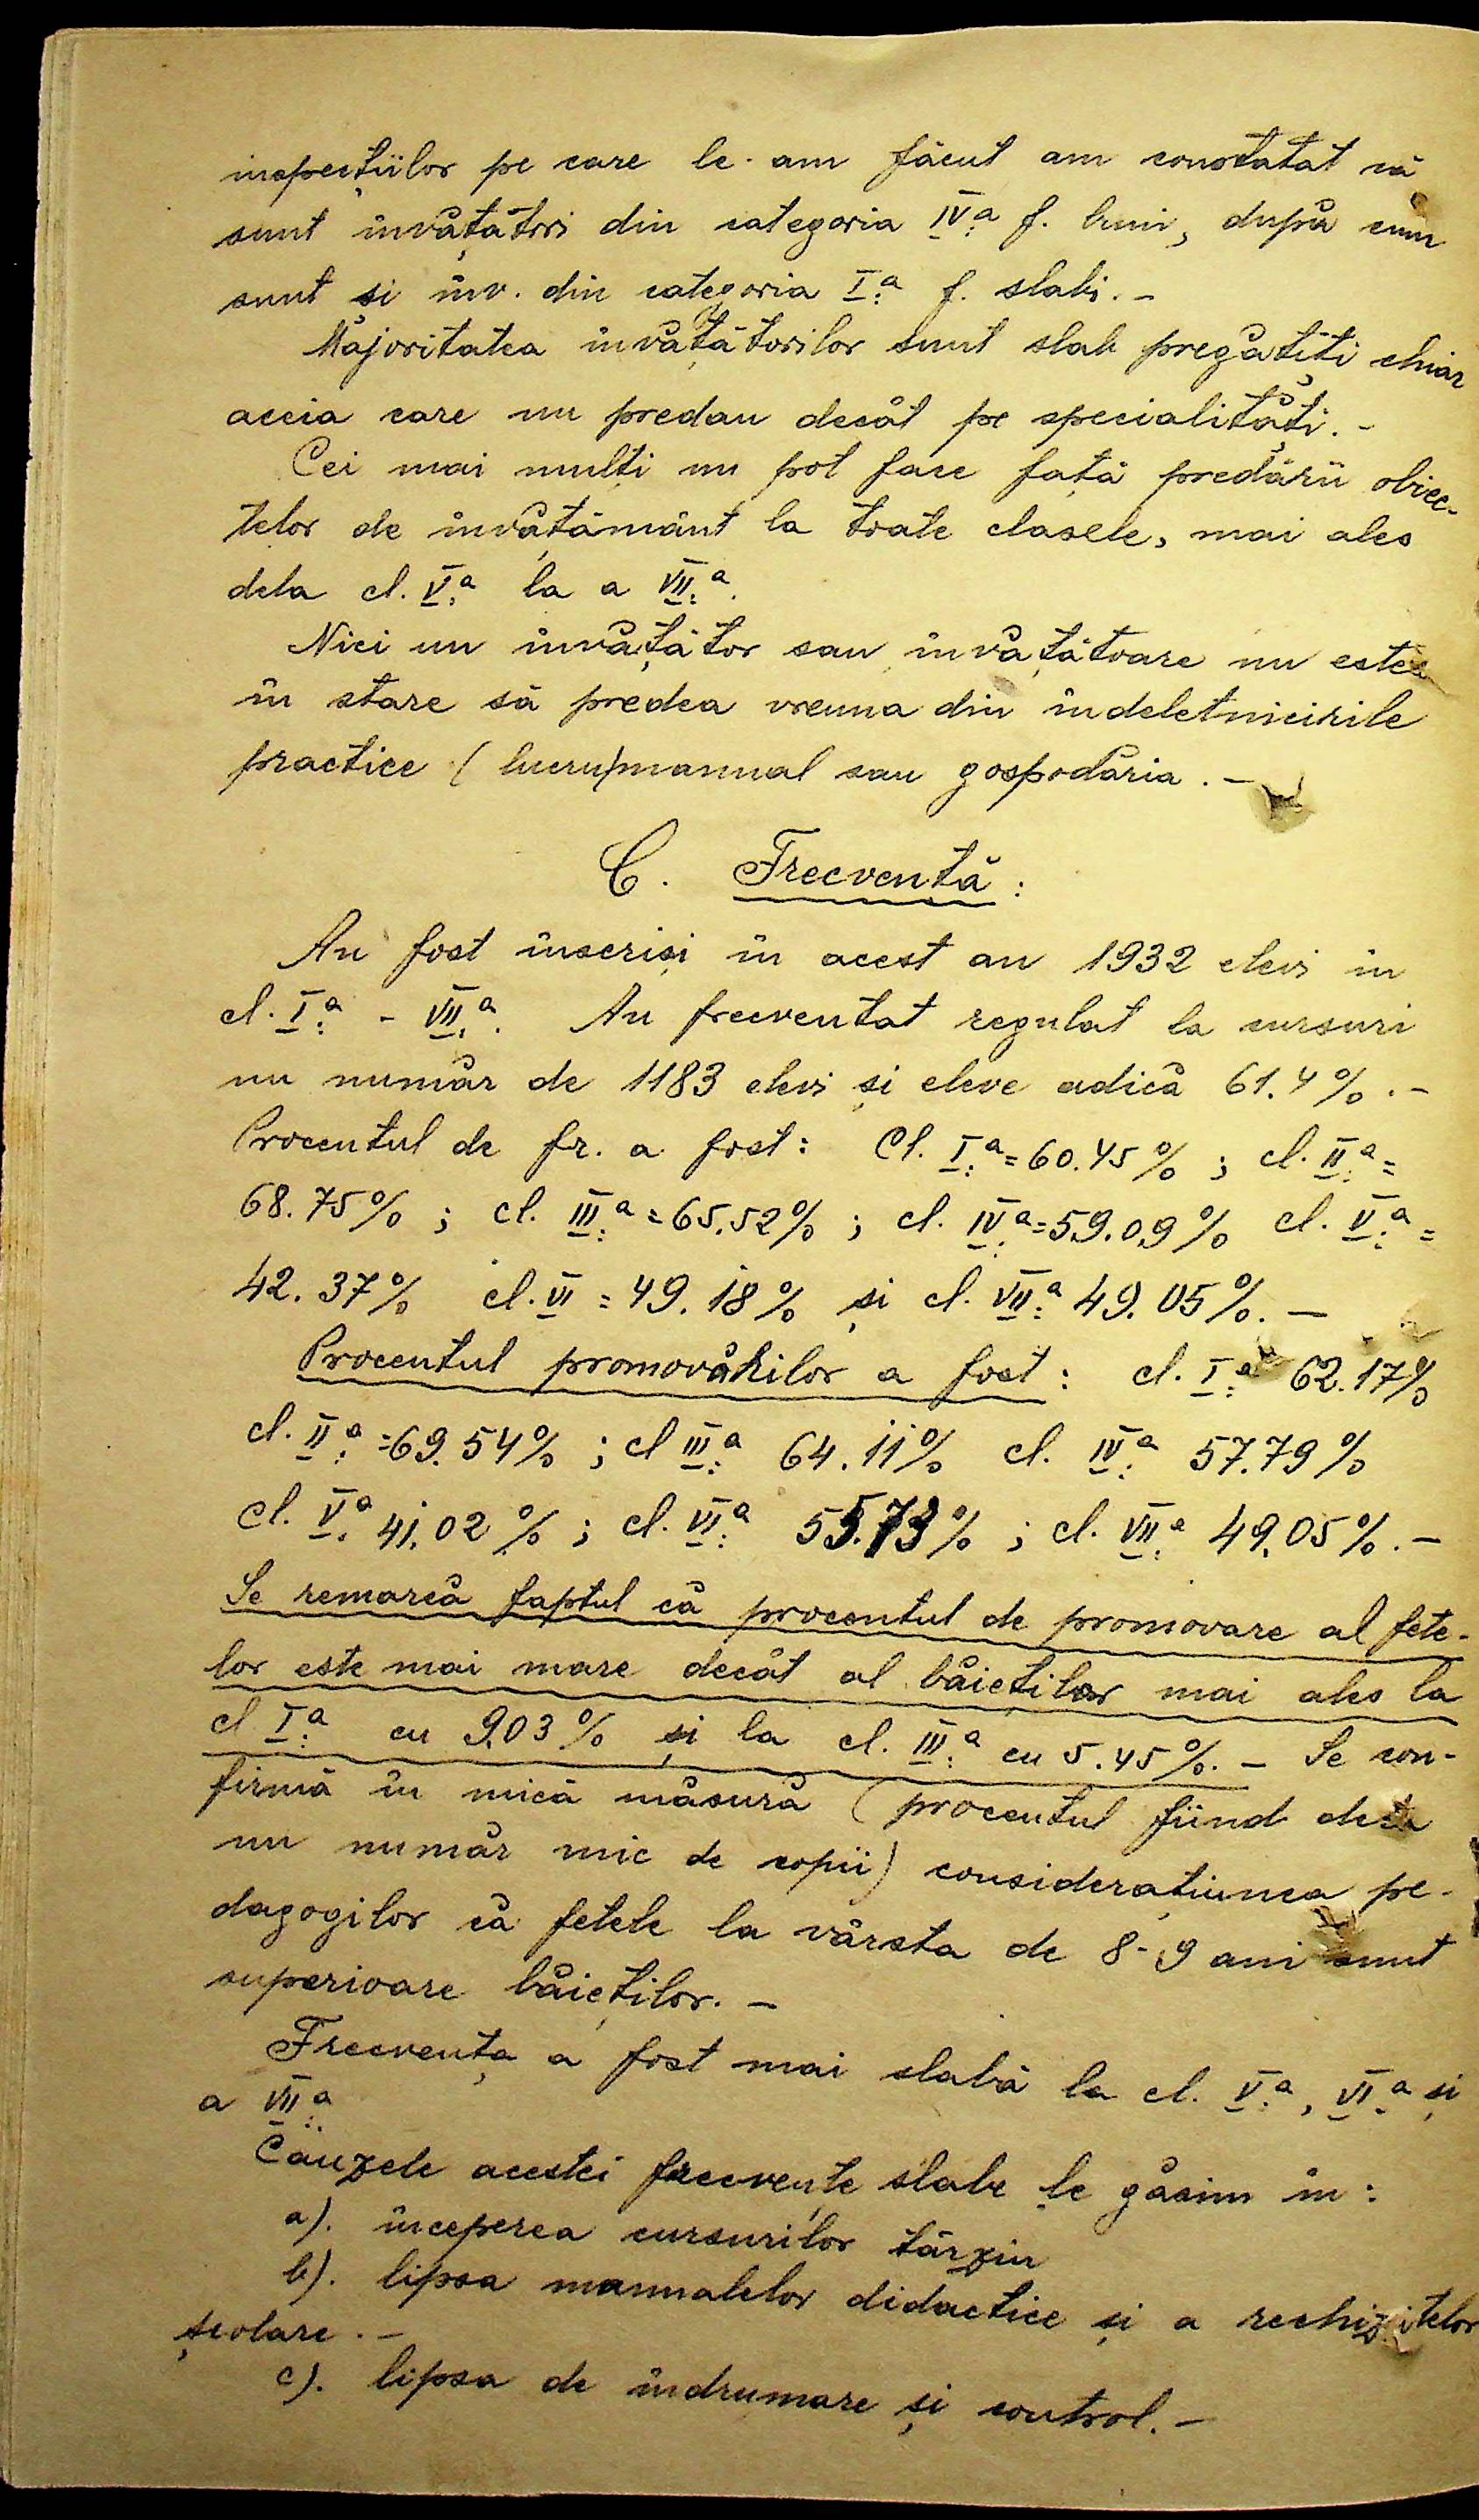 inspecțiilor pe care le-am făcut am constatat că
sunt învățători din categoria IV.a f. buni, după cum
sunt și înv. din categoria I.a f. slabi. -
Majoritatea învățătorilor sunt slab pregătiți chiar
aceia care nu predau decât pe specialități. -
Cei mai mulți nu pot face față predării obiec-
telor de învățământ la toate clasele, mai ales
dela cl. V.a la a VII.a.
Nici un învățător sau învățătoare nu este
în stare să predea vreuna din îndeletnicirile
practice (lucru) manual sau gospodăria. -
C. Frecventă:
Au fost înscriși în acest an 1932 elevi în
cl. I.a - VII.a. Au frecventat regulat la cursuri
un număr de 1183 elevi și eleve adică 61.4%. -
Procentul de fr. a fost: Cl. I.a = 60.45%; cl. II.a =
68.75%; cl. III.a = 65.52%; cl. IV.a = 59.09% cl. V.a =
42.37% cl. VI = 49.18% și cl. VII.a 49.05%. -
Procentul promovărilor a fost: cl. I.a 62.17%
cl. II.a = 69.54%; cl III.a 64.11% cl. IV.a 57.79%
cl. V.a 41.02%; cl. VI.a 55.73%; cl. VII.a 49.05%. -
Se remarcă faptul că procentul de promovare al fete-
lor este mai mare decât al băieților mai ales la
cl I.a cu 9.03% și la cl. III.a cu 5.45%. - Se con-
firmă în mică măsură (procentul fiind dela
un număr mic de copii) considerațiunea pe-
dagogilor că fetele la vârsta de 8-9 ani sunt
superioare băieților. -
Frecvența a fost mai slabă la cl. V.a, VI.a și
a VII.a
Cauzele acestei frecvențe slabe le găsim în:
a). începerea cursurilor târziu
b). lipsa manualelor didactice și a rechizitelor
școlare. -
c). lipsa de îndrumare și control. -